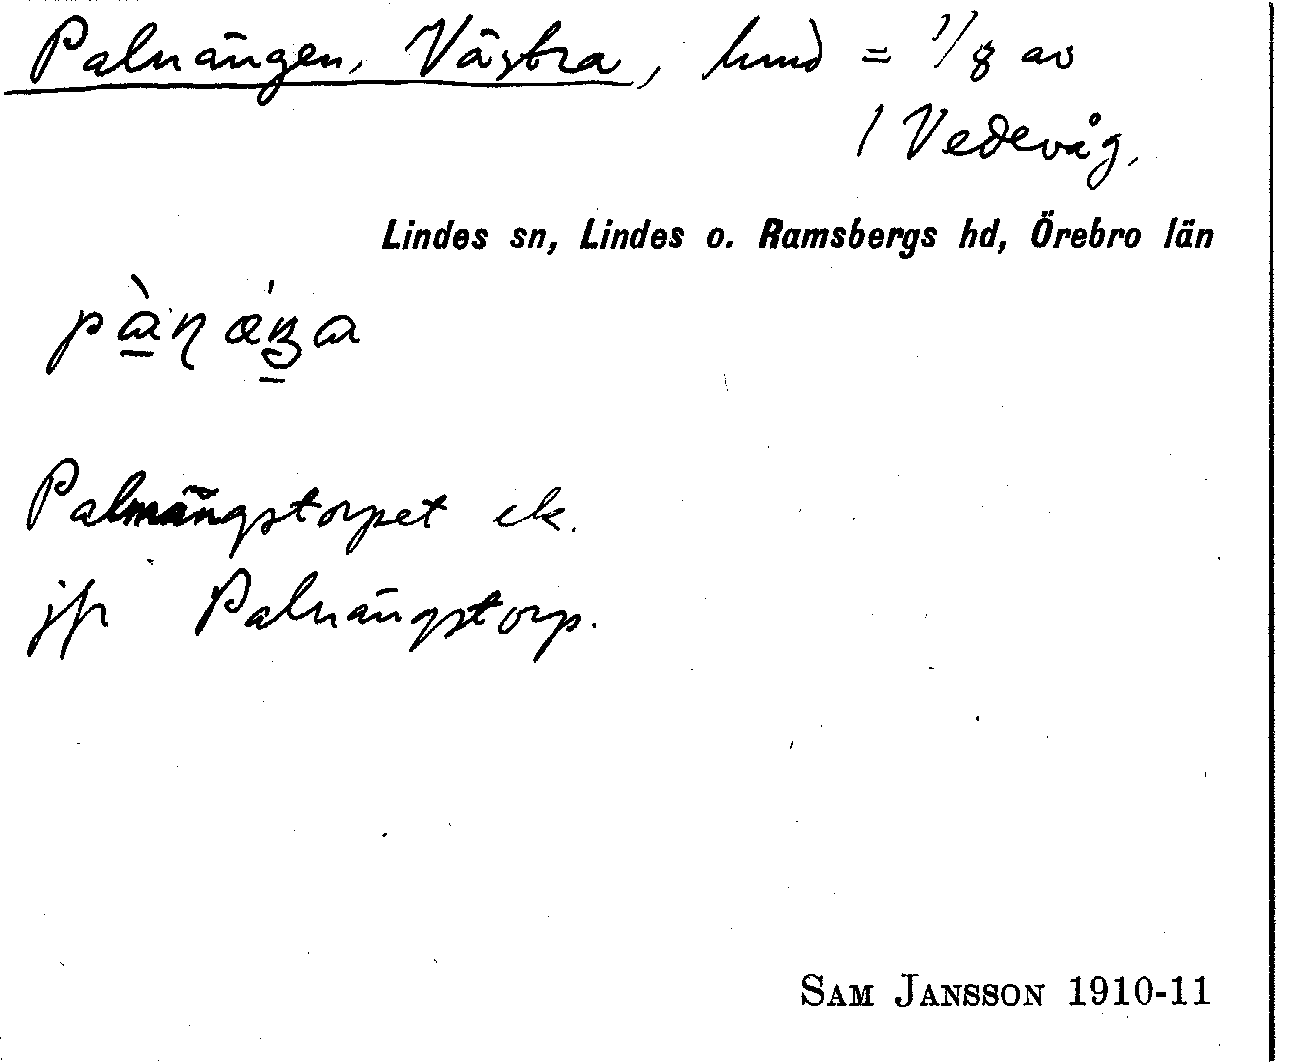 Palnängen, Västra, hmd = 1/8 av
1 Vedevåg.
Lindes sn, Lindes o. Ramsbergs hd, Örebro län
Palmängstorpet ek.
jfr Palnängstorp.
SAM JANSSON 1910-11